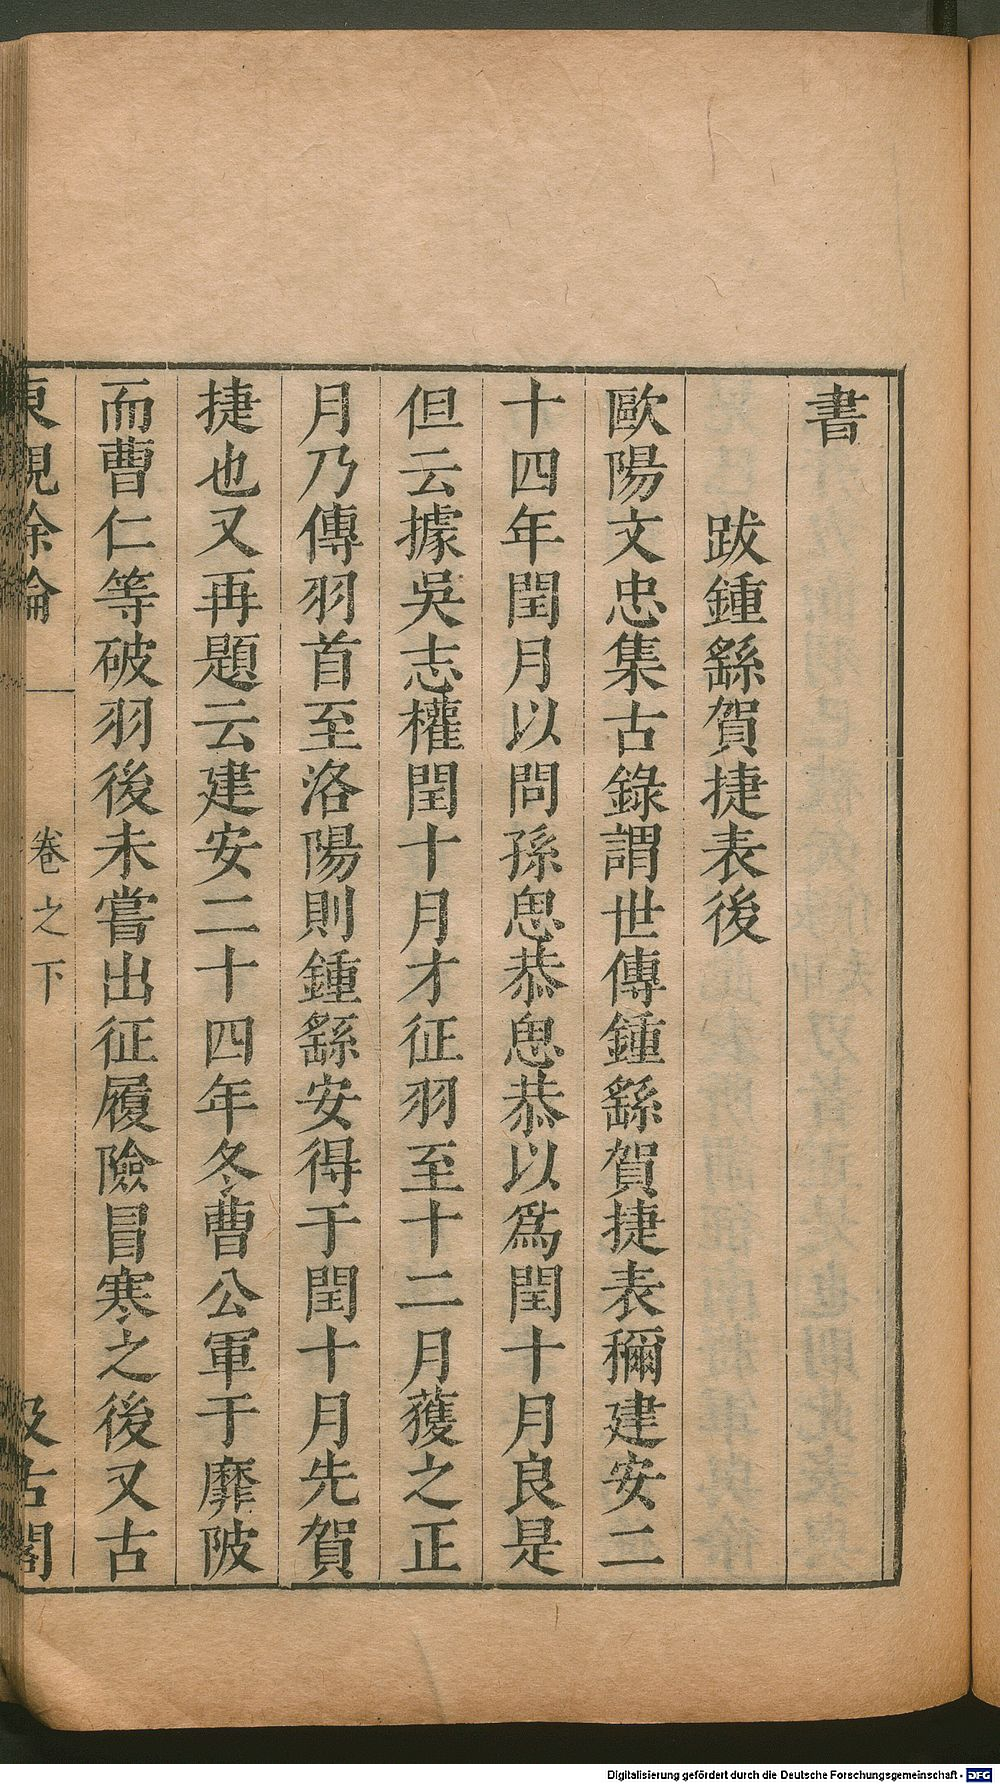 書
跋鍾繇賀捷表後
歐陽文忠集古錄謂世傳鍾繇賀捷表稱建安二
十四年閏月以問孫思恭思恭以爲閏十月良是
但云據吳志權閏十月才征羽至十二月獲之正
月乃傳羽首至洛陽則鍾繇安得于閏十月先賀
捷也又再題云建安二十四年冬曹公軍于靡陂
而曹仁等破羽後未嘗出征履險冒寒之後又古
東觀餘論
卷之下
汲古閣
Digitalisierung gefördert durch die Deutsche Forschungsgemeinschaft - DFG